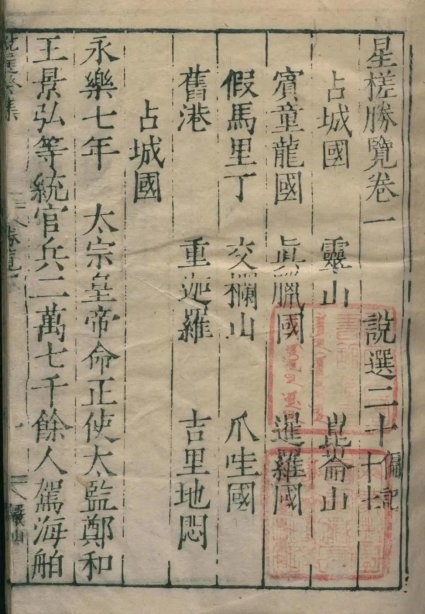 星槎勝覽卷一 說選二十 偏記
占城國 靈山 崑崙山
賓童龍國 眞臘國 暹羅國
假馬里丁 交欄山 爪哇國
舊港 重迦羅 吉里地悶
占城國
永樂七年 太宗皇帝命正使太監鄭和
王景弘等統官兵二萬七千餘人駕海舶